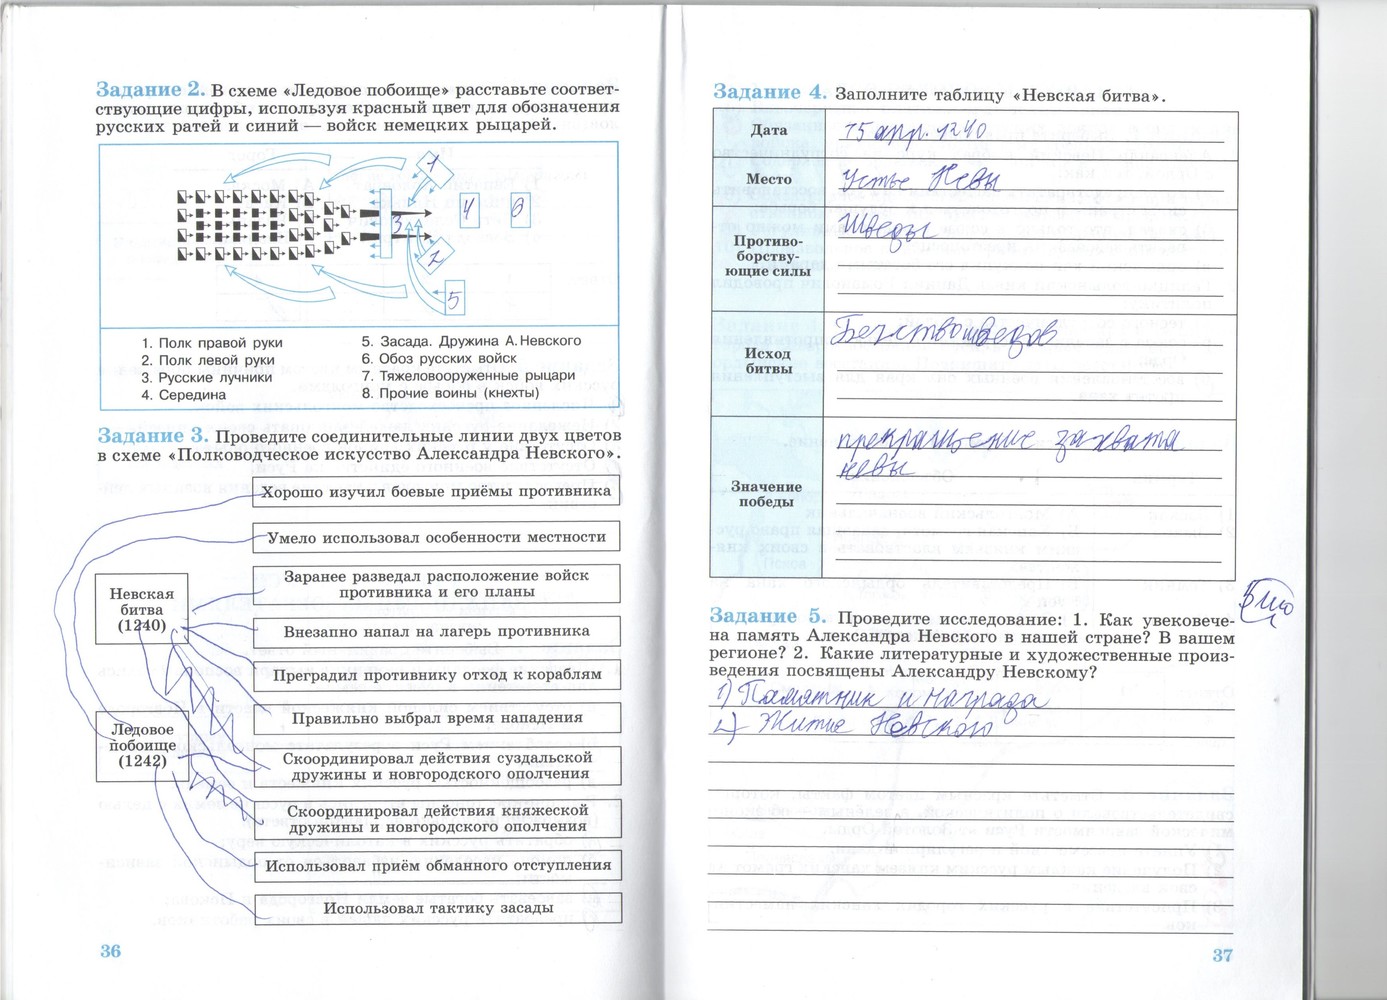 Задание 2. В схеме «Ледовое побоище» расставьте соответ-
ствующие цифры, используя красный цвет для обозначения
русских ратей и синий — войск немецких рыцарей.
1
3
4
6
2
5
1. Полк правой руки
2. Полк левой руки
3. Русские лучники
4. Середина
5. Засада. Дружина А. Невского
6. Обоз русских войск
7. Тяжеловооруженные рыцари
8. Прочие воины (кнехты)
Задание 3. Проведите соединительные линии двух цветов
в схеме «Полководческое искусство Александра Невского».
Невская
битва
(1240)
Ледовое
побоище
(1242)
Хорошо изучил боевые приёмы противника
Умело использовал особенности местности
Заранее разведал расположение войск
противника и его планы
Внезапно напал на лагерь противника
Преградил противнику отход к кораблям
Правильно выбрал время нападения
Скоординировал действия суздальской
дружины и новгородского ополчения
Скоординировал действия княжеской
дружины и новгородского ополчения
Использовал приём обманного отступления
Использовал тактику засады
36
Задание 4. Заполните таблицу «Невская битва».
Дата
15 апр. 1240
Место
Устье Невы
Противо-
борству-
ющие силы
Шведы
Исход
битвы
Бегство шведов
Значение
победы
прекращение захвата
невы
Задание 5. Проведите исследование: 1. Как увековече-
на память Александра Невского в нашей стране? В вашем
регионе? 2. Какие литературные и художественные произ-
ведения посвящены Александру Невскому?
1) Памятник и награда
2) Житие Невского
37